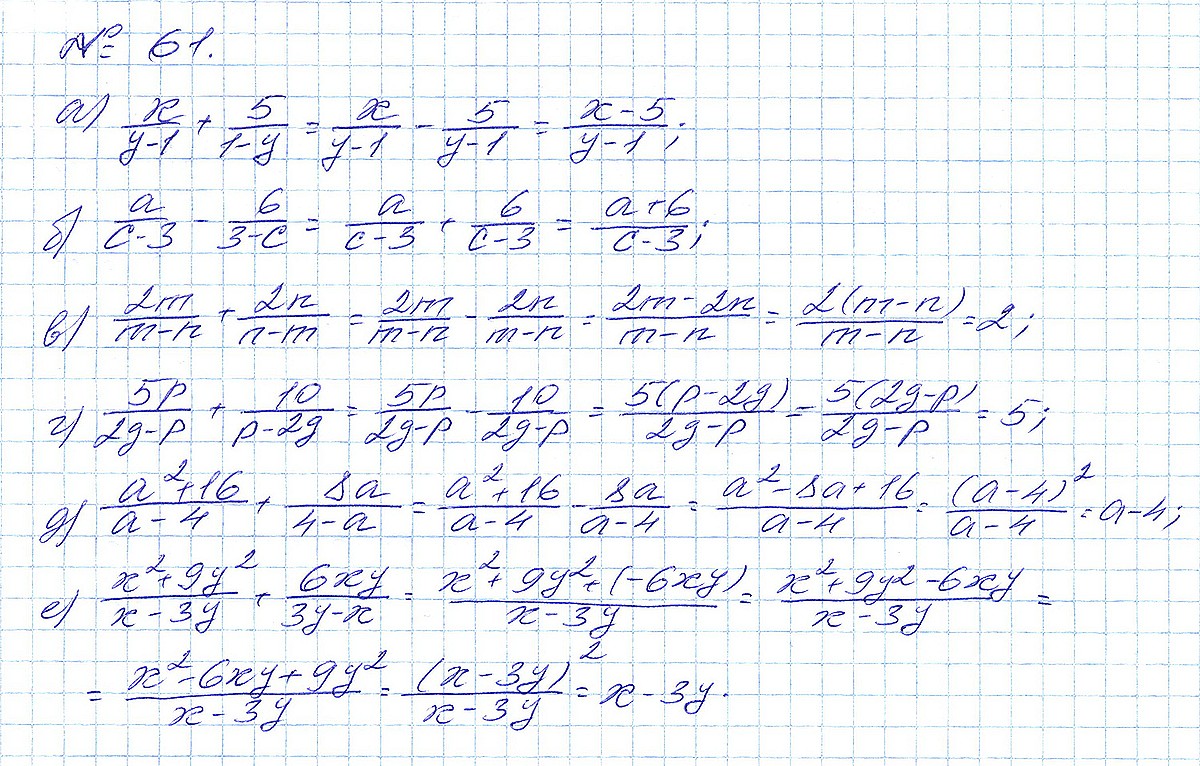 № 61.
а) x/(y-1) + 5/(1-y) = x/(y-1) - 5/(y-1) = (x-5)/(y-1);
б) a/(c-3) - 6/(3-c) = a/(c-3) + 6/(c-3) = (a+6)/(c-3);
в) 2m/(m-n) + 2n/(n-m) = 2m/(m-n) - 2n/(m-n) = (2m-2n)/(m-n) = 2(m-n)/(m-n) = 2;
г) 5p/(2g-p) + 10/(p-2g) = 5p/(2g-p) - 10/(2g-p) = 5(p-2g)/(2g-p) = 5(2g-p)/(2g-p) = 5;
д) (a²+16)/(a-4) + 8a/(4-a) = (a²+16)/(a-4) - 8a/(a-4) = (a²-8a+16)/(a-4) = (a-4)²/(a-4) = a-4;
е) (x²+9y²)/(x-3y) + 6xy/(3y-x) = (x²+9y²+(-6xy))/(x-3y) = (x²+9y²-6xy)/(x-3y) =
= (x²-6xy+9y²)/(x-3y) = (x-3y)²/(x-3y) = x-3y.